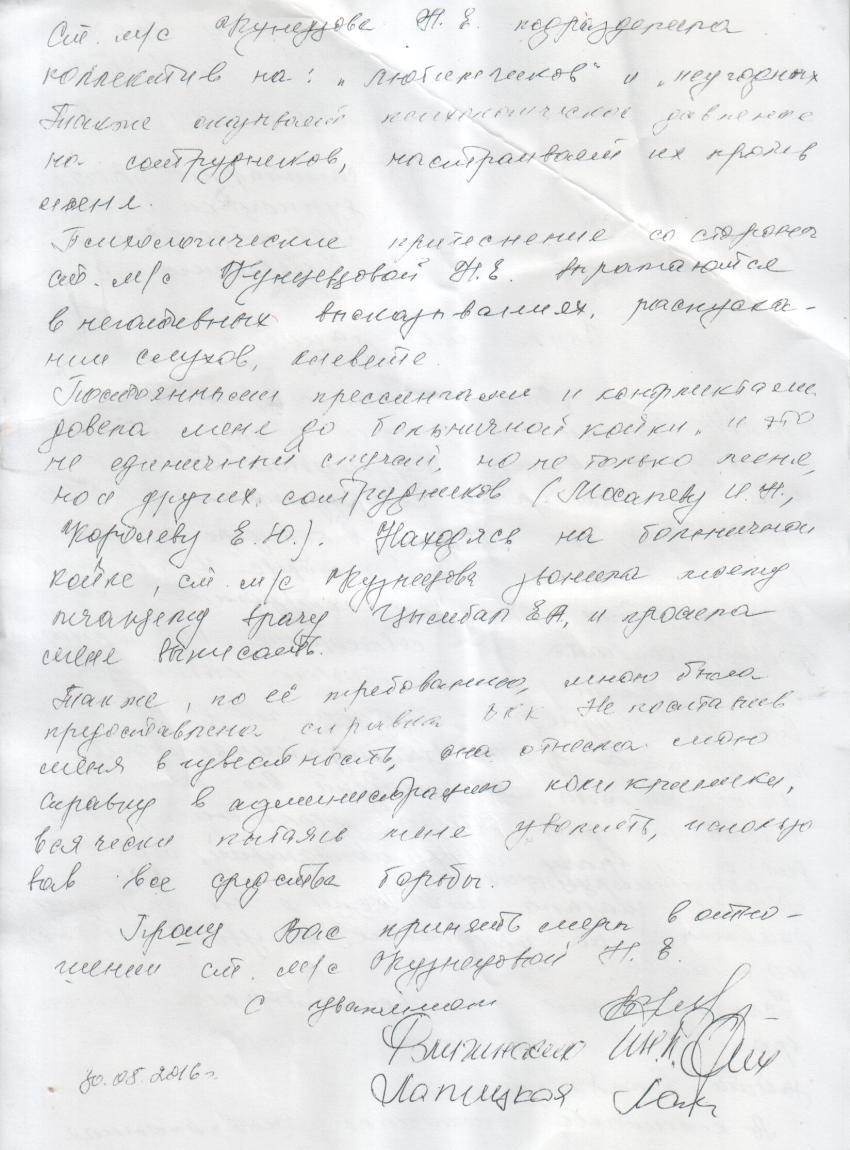 Ст. м/с Кузнецова Н. Е. подразделила
коллектив на: „любимчиков" и „неугодных
Также оказывает психологическое давление
на сотрудников, настраивает их против
меня.
Психологические притеснение со стороны
ст. м/с Кузнецовой Н.Е. выражаются
в негативных высказываниях, распуска-
нии слухов, клевете.
Постоянными прессингами и конфликтами
довела меня до больничной койки, и это
не единичный случай, но не только меня,
но и других сотрудников (Мохареву И.Н.,
Королеву Е.Ю.). Находясь на больничной
койке, ст. м/с Кузнецова звонила моему
лечащему врачу Цымбал ЕА, и просила
меня выписать.
Также, по её требованию, мною была
предоставлена справка ВКК Не поставив
меня в известность, она отнесла мою
справку в администрацию поликлиники,
всячески пытаясь меня уволить, использо
вав все средства борьбы.
Прошу Вас принять меры в отно-
шении ст. м/с Кузнецовой Н. Е.
С уважением
И.Н.
Лапицкая
30.05.2016г.